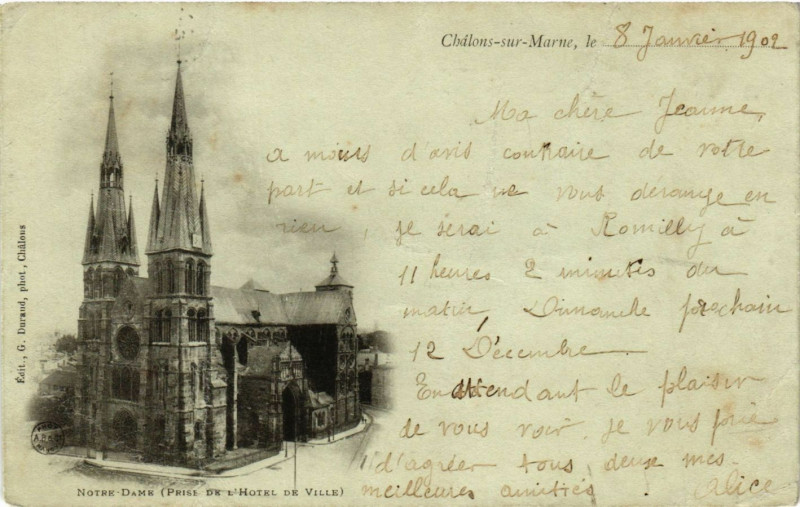 Châlons-sur-Marne, le 8 Janvier 1902
Ma chère Jeanne,
a moins d'avis contraire de votre
part et si cela ne vous dérange en
rien, je serai à Romilly à
11 heures 2 minutes du
matin, Dimanche prochain
12 Décembre
En attendant le plaisir
de vous voir je vous prie
d'agréer tous deux mes
meilleures amitiés Alice
Édit., G. Durand, phot., Châlons
NOTRE-DAME (PRISE DE L'HOTEL DE VILLE)